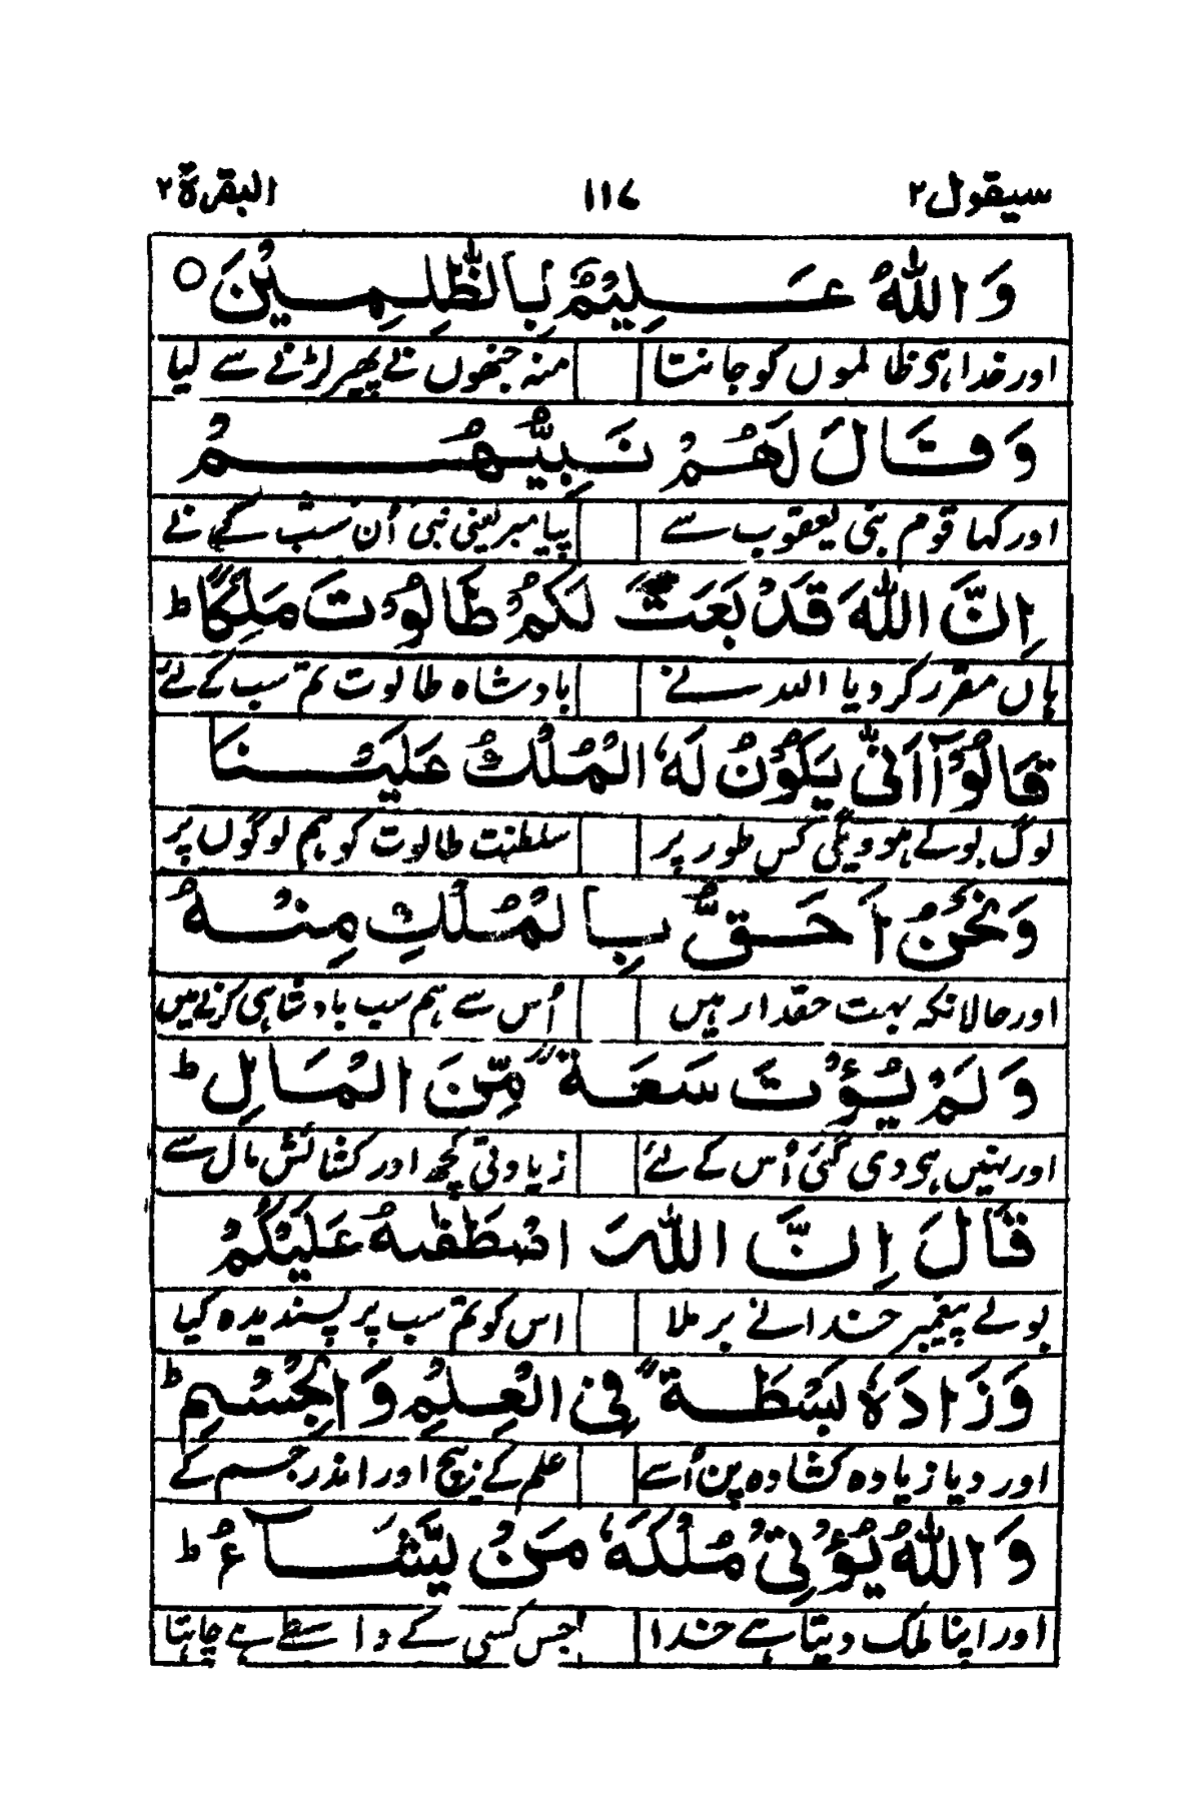 سیقول ۲ ۱۱۷ البقرة ۲
وَاللّٰهُ عَلِيْمٌۢ بِالظّٰلِمِيْنَ ○
اور خدا ہی ظالموں کو جانتا منہ جنھوں نے پھیر لڑنے سے لیا
وَقَالَ لَهُمْ نَبِيُّهُمْ
اور کہا قوم بنی یعقوب سے پیامبر یعنی نبی اُن سب کے نے
اِنَّ اللّٰهَ قَدْ بَعَثَ لَكُمْ طَالُوْتَ مَلِكًا ط
ہاں مقرر کر دیا اللہ نے بادشاہ طالوت تم سب کے لئے
قَالُوْٓا اَنّٰى يَكُوْنُ لَهُ الْمُلْكُ عَلَيْنَا
لوگ بولے ہووےگی کس طور پر سلطنت طالوت کو ہم لوگوں پر
وَنَحْنُ اَحَقُّ بِالْمُلْكِ مِنْهُ
اور حالانکہ بہت حقدار ہیں اُس سے ہم سب بادشاہی کرنے میں
وَلَمْ يُؤْتَ سَعَةً مِّنَ الْمَالِ ط
اور نہیں ہی دی گئی اُس کے لئے زیادتی کچھ اور کشائش مال سے
قَالَ اِنَّ اللّٰهَ اصْطَفٰىهُ عَلَيْكُمْ
بولے پیغمبر خدا نے برملا اس کو تم سب پر پسندیدہ کیا
وَزَادَهٗ بَسْطَةً فِى الْعِلْمِ وَالْجِسْمِ ط
اور دیا زیادہ کشادہ پن اُسے علم کے بیچ اور اندر جسم کے
وَاللّٰهُ يُؤْتِىْ مُلْكَهٗ مَنْ يَّشَآءُ ط
اور اپنا ملک دیتا ہے خدا جس کسی کے واسطے ہے چاہتا